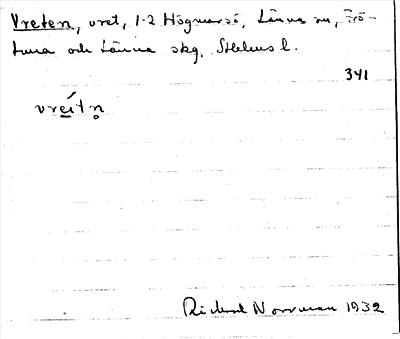 Vreten, vret, 1-2 Högmarsö, Länna sn, Frö-
tuna och Länna skg, Sthlms l.
341
vreitn̥
Rickard Norrman 1932